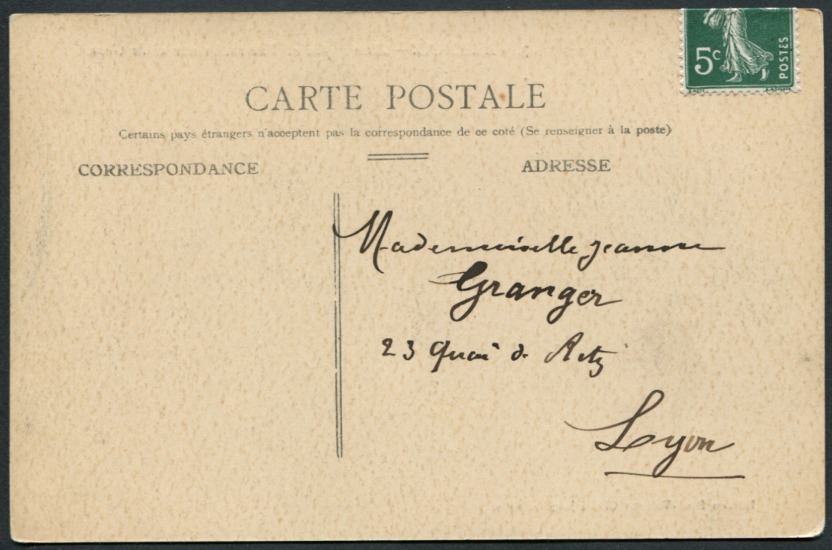 5c
POSTES
CARTE POSTALE
Certains pays étrangers n'acceptent pas la correspondance de ce coté (Se renseigner à la poste)
CORRESPONDANCE
ADRESSE
Mademoiselle Jeanne
Granger
23 Quai de Retz
Lyon